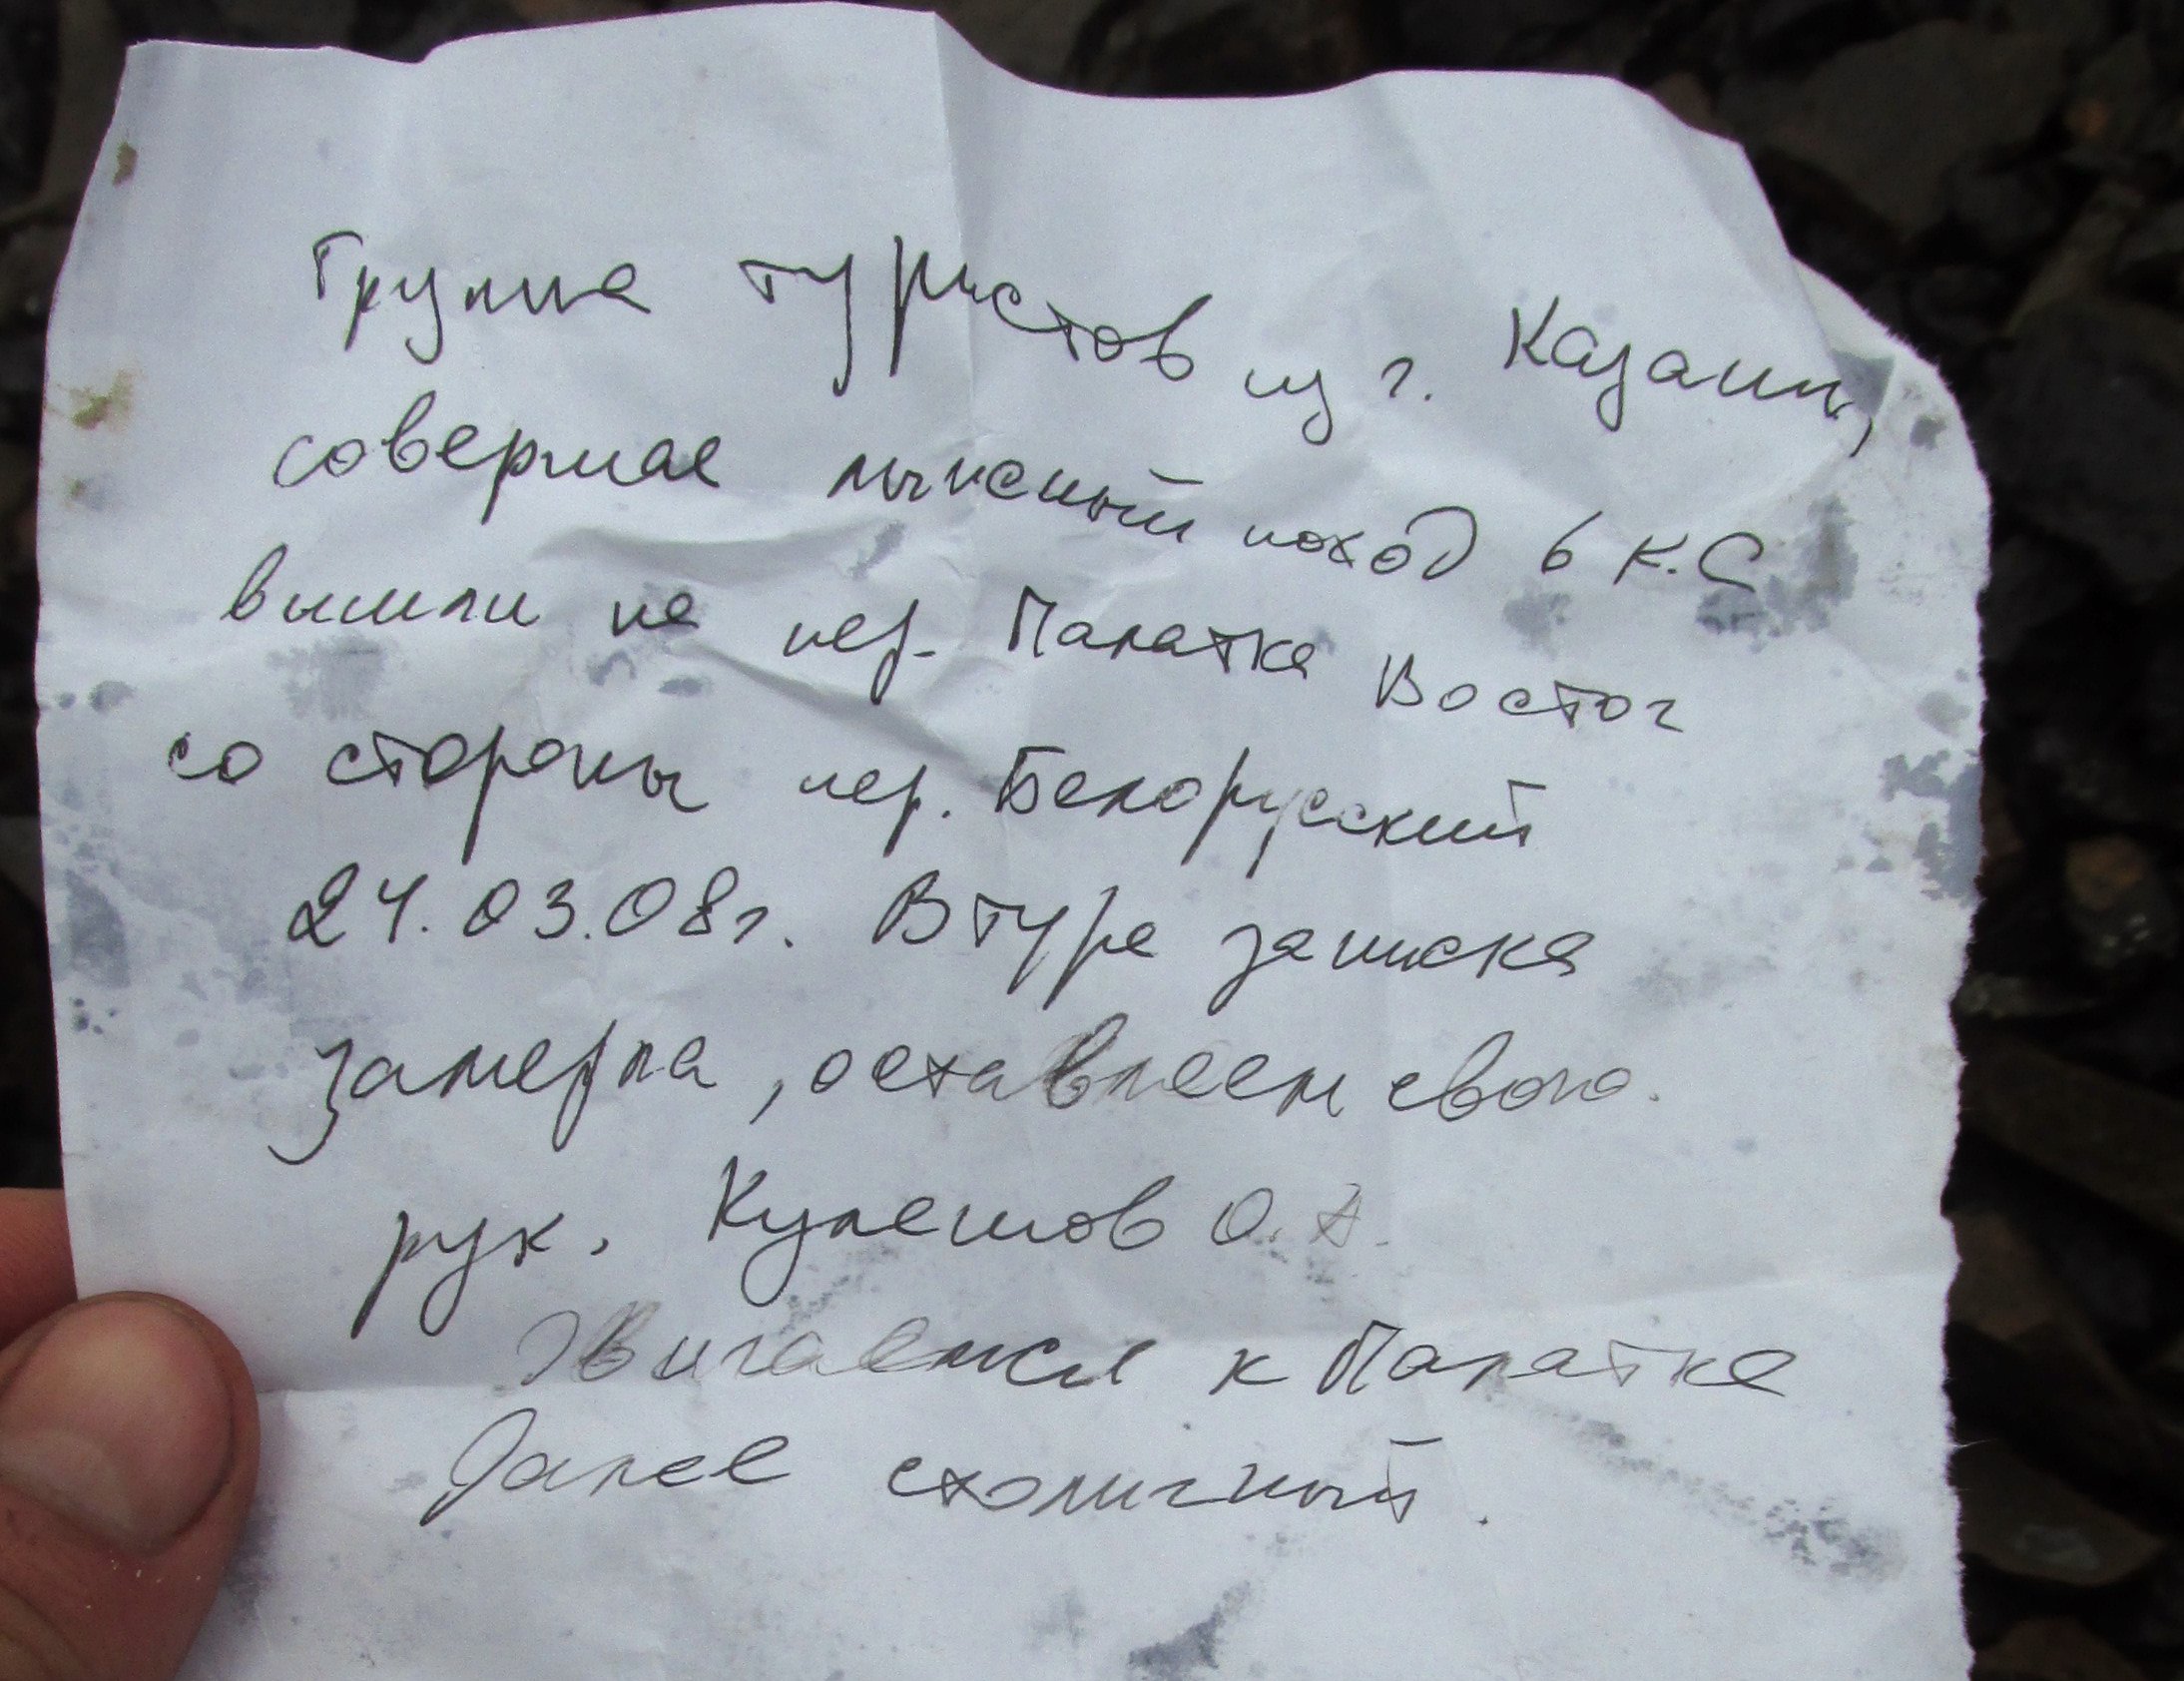 Группа туристов из г. Казани,
совершае лыжный поход 6 к.с
вышли на пер. Палатка Восток
со стороны пер. Белорусский
24.03.08г. В туре записка
замерзла, оставляем свою.
рук. Кулешов О.А.
Двигаемся к Палатке
Далее столичный.